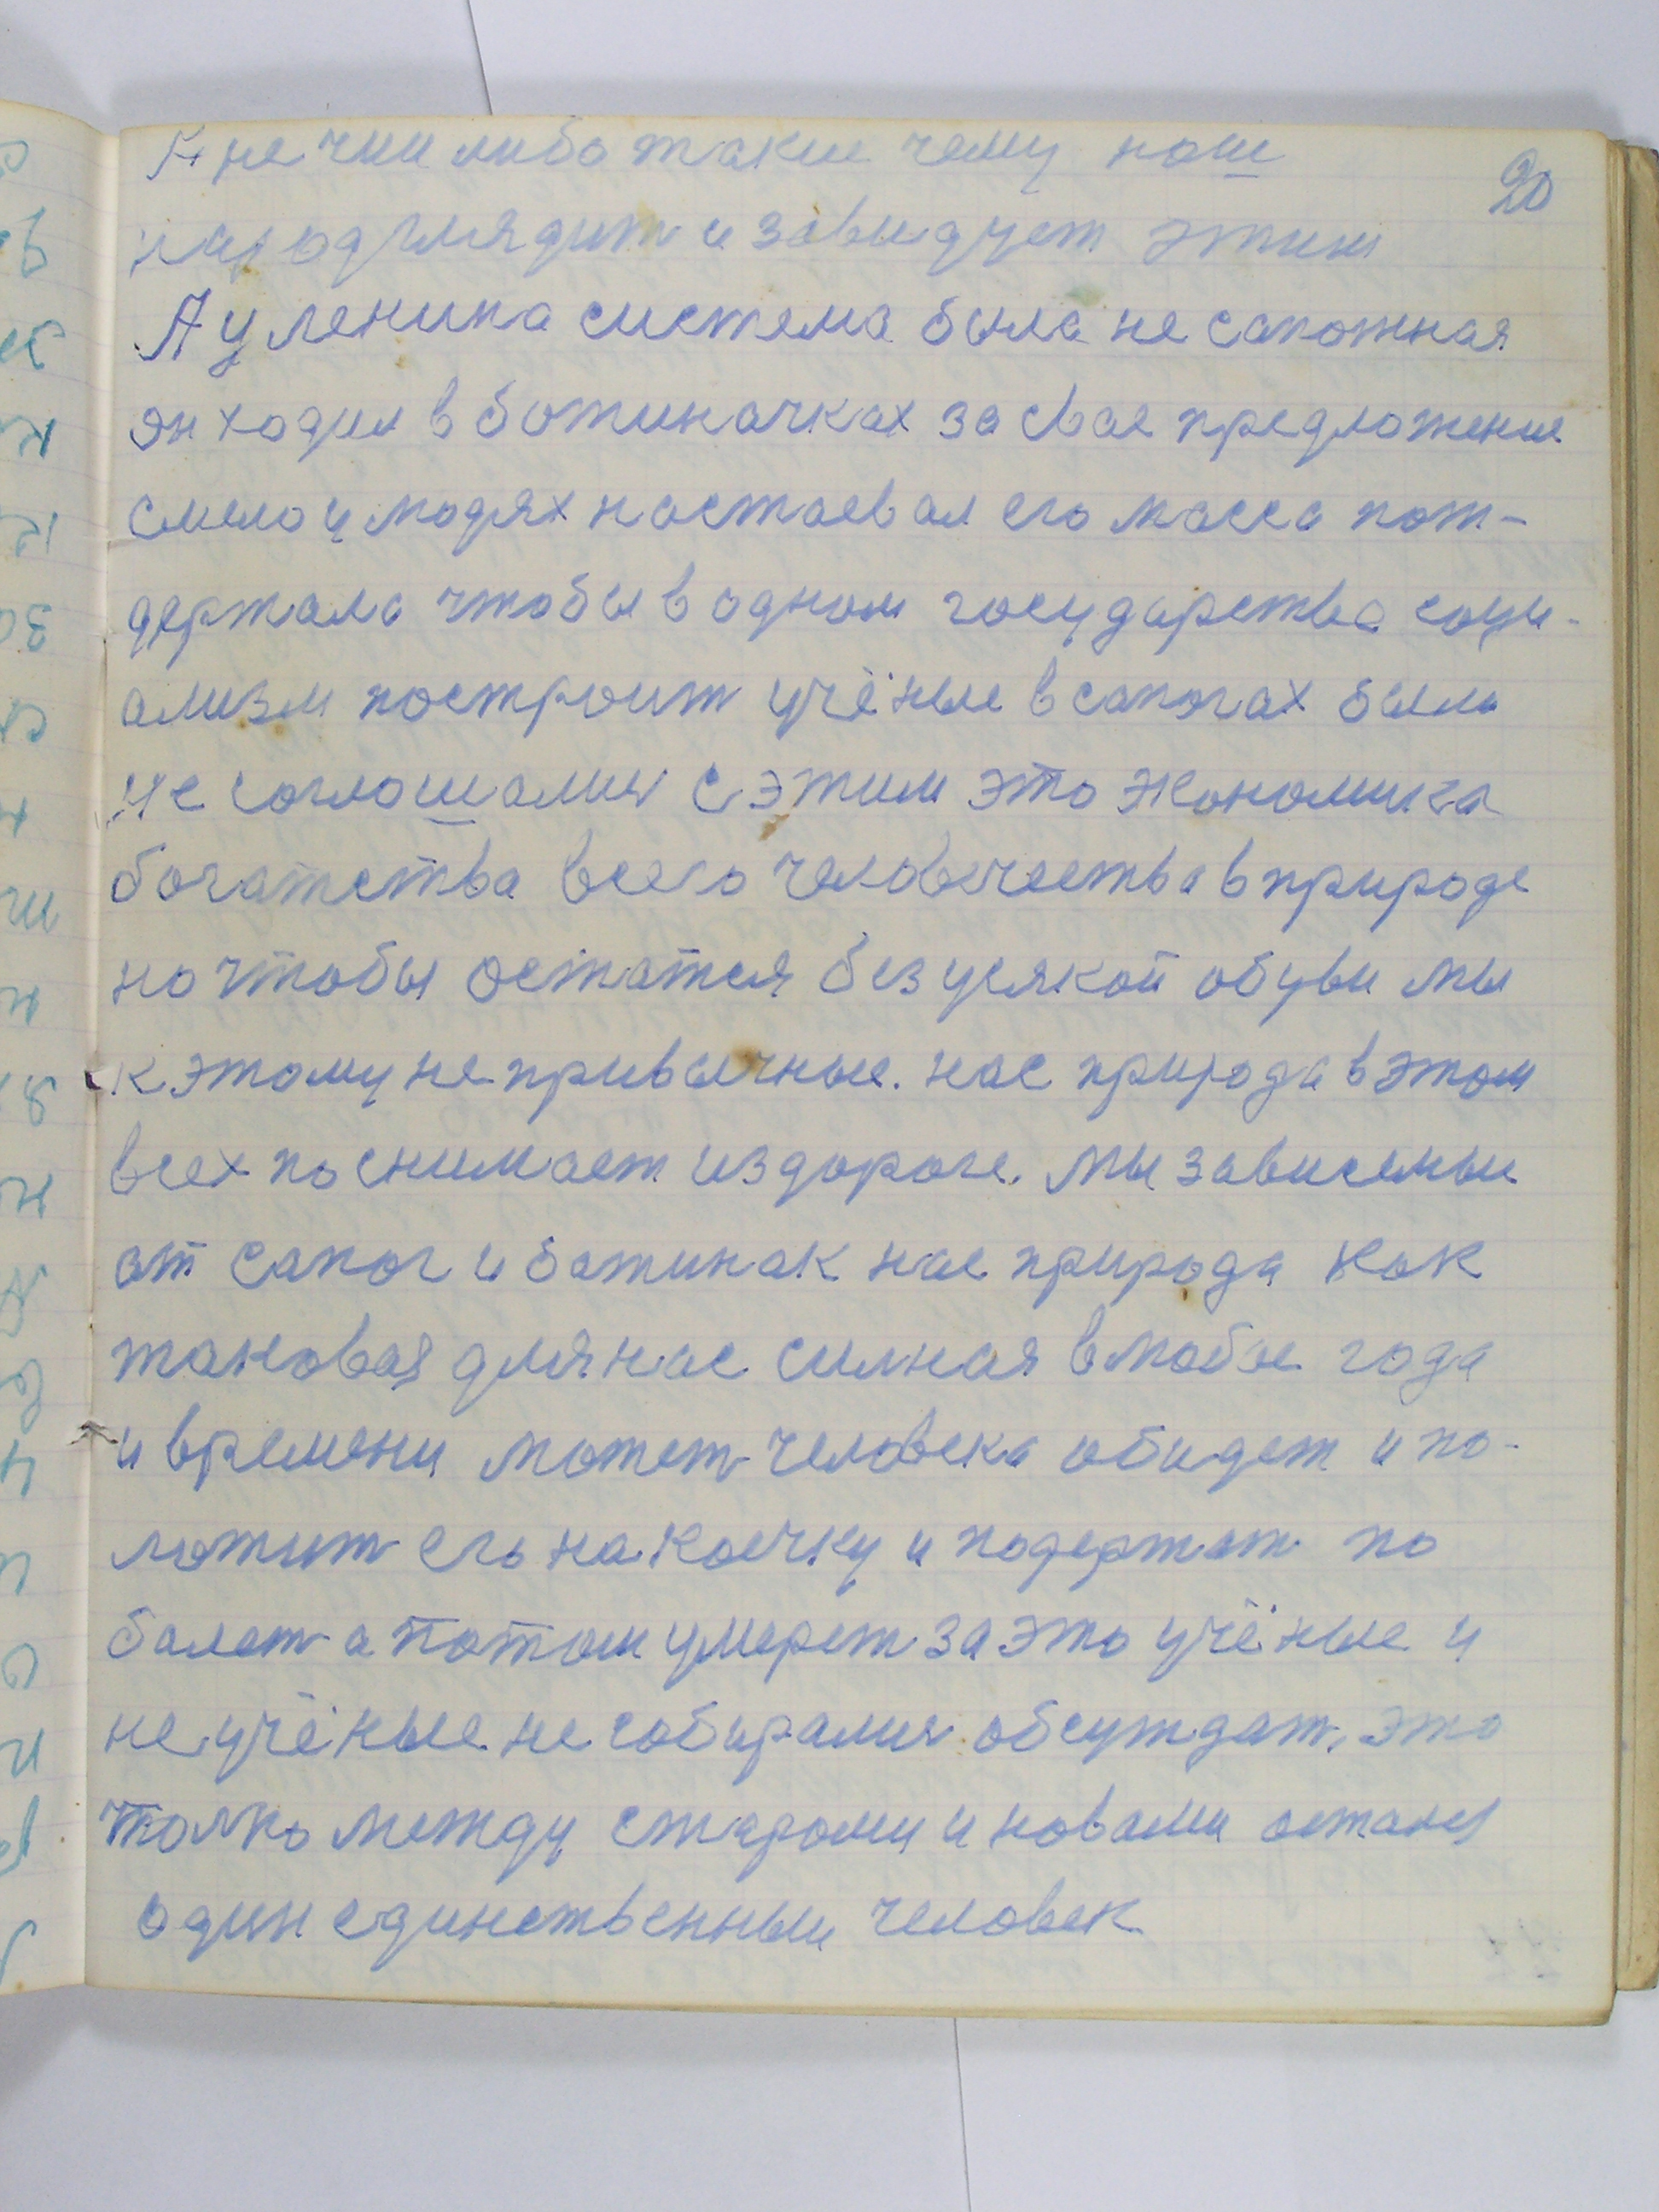 20
А не чии либо такие чему наш
народ глядит и завидует этим
А у ленина система была не сапожная
он ходил в ботиначках за свое предложение
смело у людях настаевал его масса пот-
держала чтобы в одном государства соци-
ализм построит учёные в сапогах были
не соглошалися с этим это экономика
богатства всего человечества в природе
но чтобы остатся без усякой обуви мы
к этому не привычные. нас природа в этом
всех поснимает из дороге. мы зависемые
от сапог и ботинак нас природа как
таковая для нас силная в любые года
и времени может человека обидет и по-
ложит его на коечку и подержат по
болет а потом умерет за это учёные и
не учёные не собиралися обсуждат. это
толко между старыми и новыми остался
один единственный человек